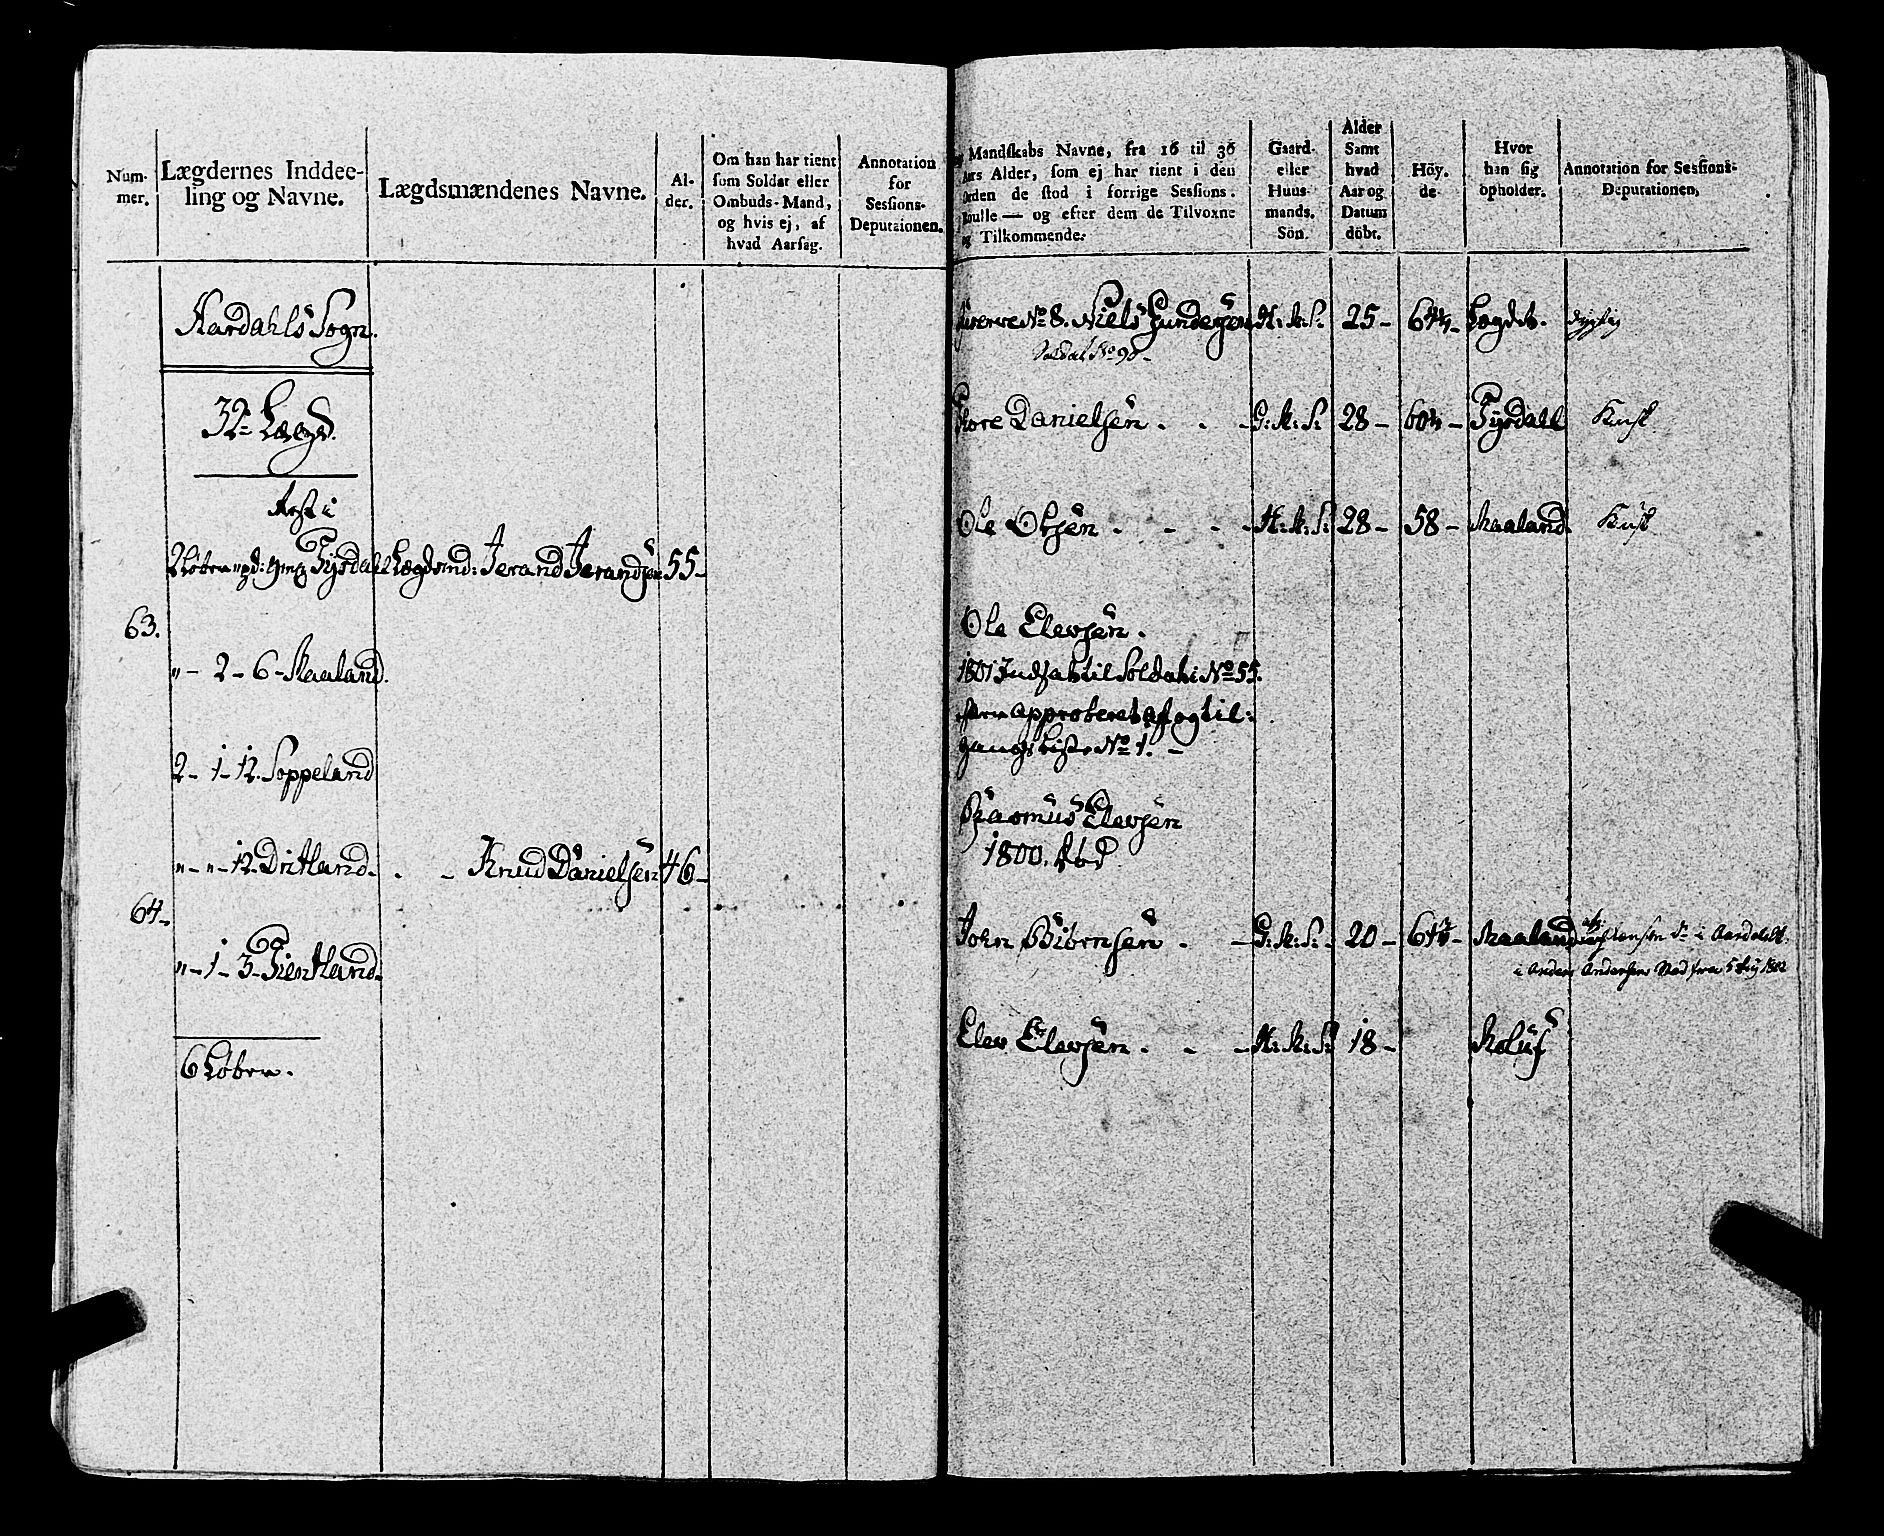 Num-
mer.
Lægdernes Inddee-
ling og Navne.
Lægdsmændenes Navne.
Al-
der.
Om han har tient
som Soldat eller
Ombuds-Mand,
og hvis ej, af
hvad Aarsag.
Annotation
for
Sessions-
Deputaionen.
Aardahls Sogn.
32te Lægd.
Rest i
2 Løber Tysdahl Lægdsmd: Jerand Jerandsen 55-
63.
"- 2- 6- Maaland.
2- 1- 12. Soppeland
"- "- 12. Dritland. - Knud Danielsen 46-
64-
"- 1- 3- Tientland.
6 Løber.
Mandskabs Navne, fra 16 til 36
Aars Alder, som ej har tient i den
Orden de stod i forrige Sessions-
Roulle — og efter dem de Tilvoxne
og Tilkommende.
Gaard-
eller
Huus-
mands.
Sön.
Alder
Samt
hvad
Aar og
Datum
döbt.
Höy.
de.
Hvor
han sig
opholder.
Annotation for Sessions-
Deputationen,
Reserve No 8. Niels Gundersen H: M: S: 25- 64¼- Lægdet. dygtig
Soldat No 90-
Thore Danielsen . . - G: M: S: 28- 60¼- Tysdahl Kusk
Ole Olsen . - . - H: M: S: 28- 58- Maaland. Kusk
Ole Elevsen.
1801 Indsat til Soldat i No 55.
approberet Af og til:
gangs Liste No 1. -
Rasmus Elevsen
1800. død
John Biörnsen . - G: M: S:- 20- Maaland
i Anders Andersens Sted fra 1802
Elev Elevsen . - - H: M: S: 18- Moluf